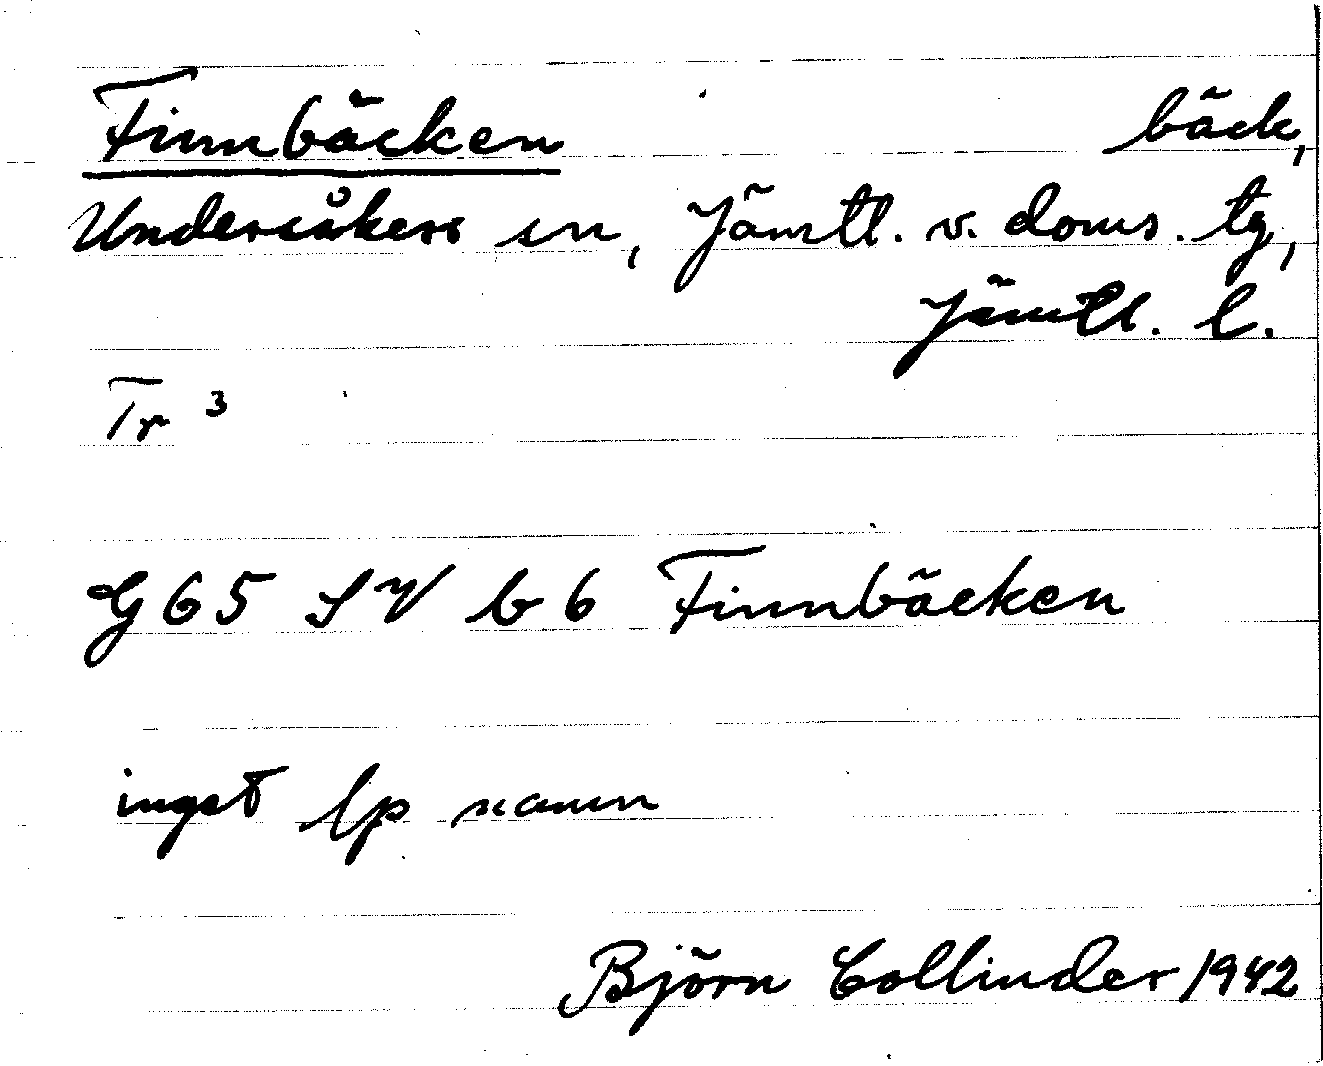 Finnbäcken bäck,
Undersåkers sn, Jämtl. v. doms. tg,
Jämtl. l.
Tr 3
G 65 SV b 6 Finnbäcken
inget lp namn
Björn Collinder 1942